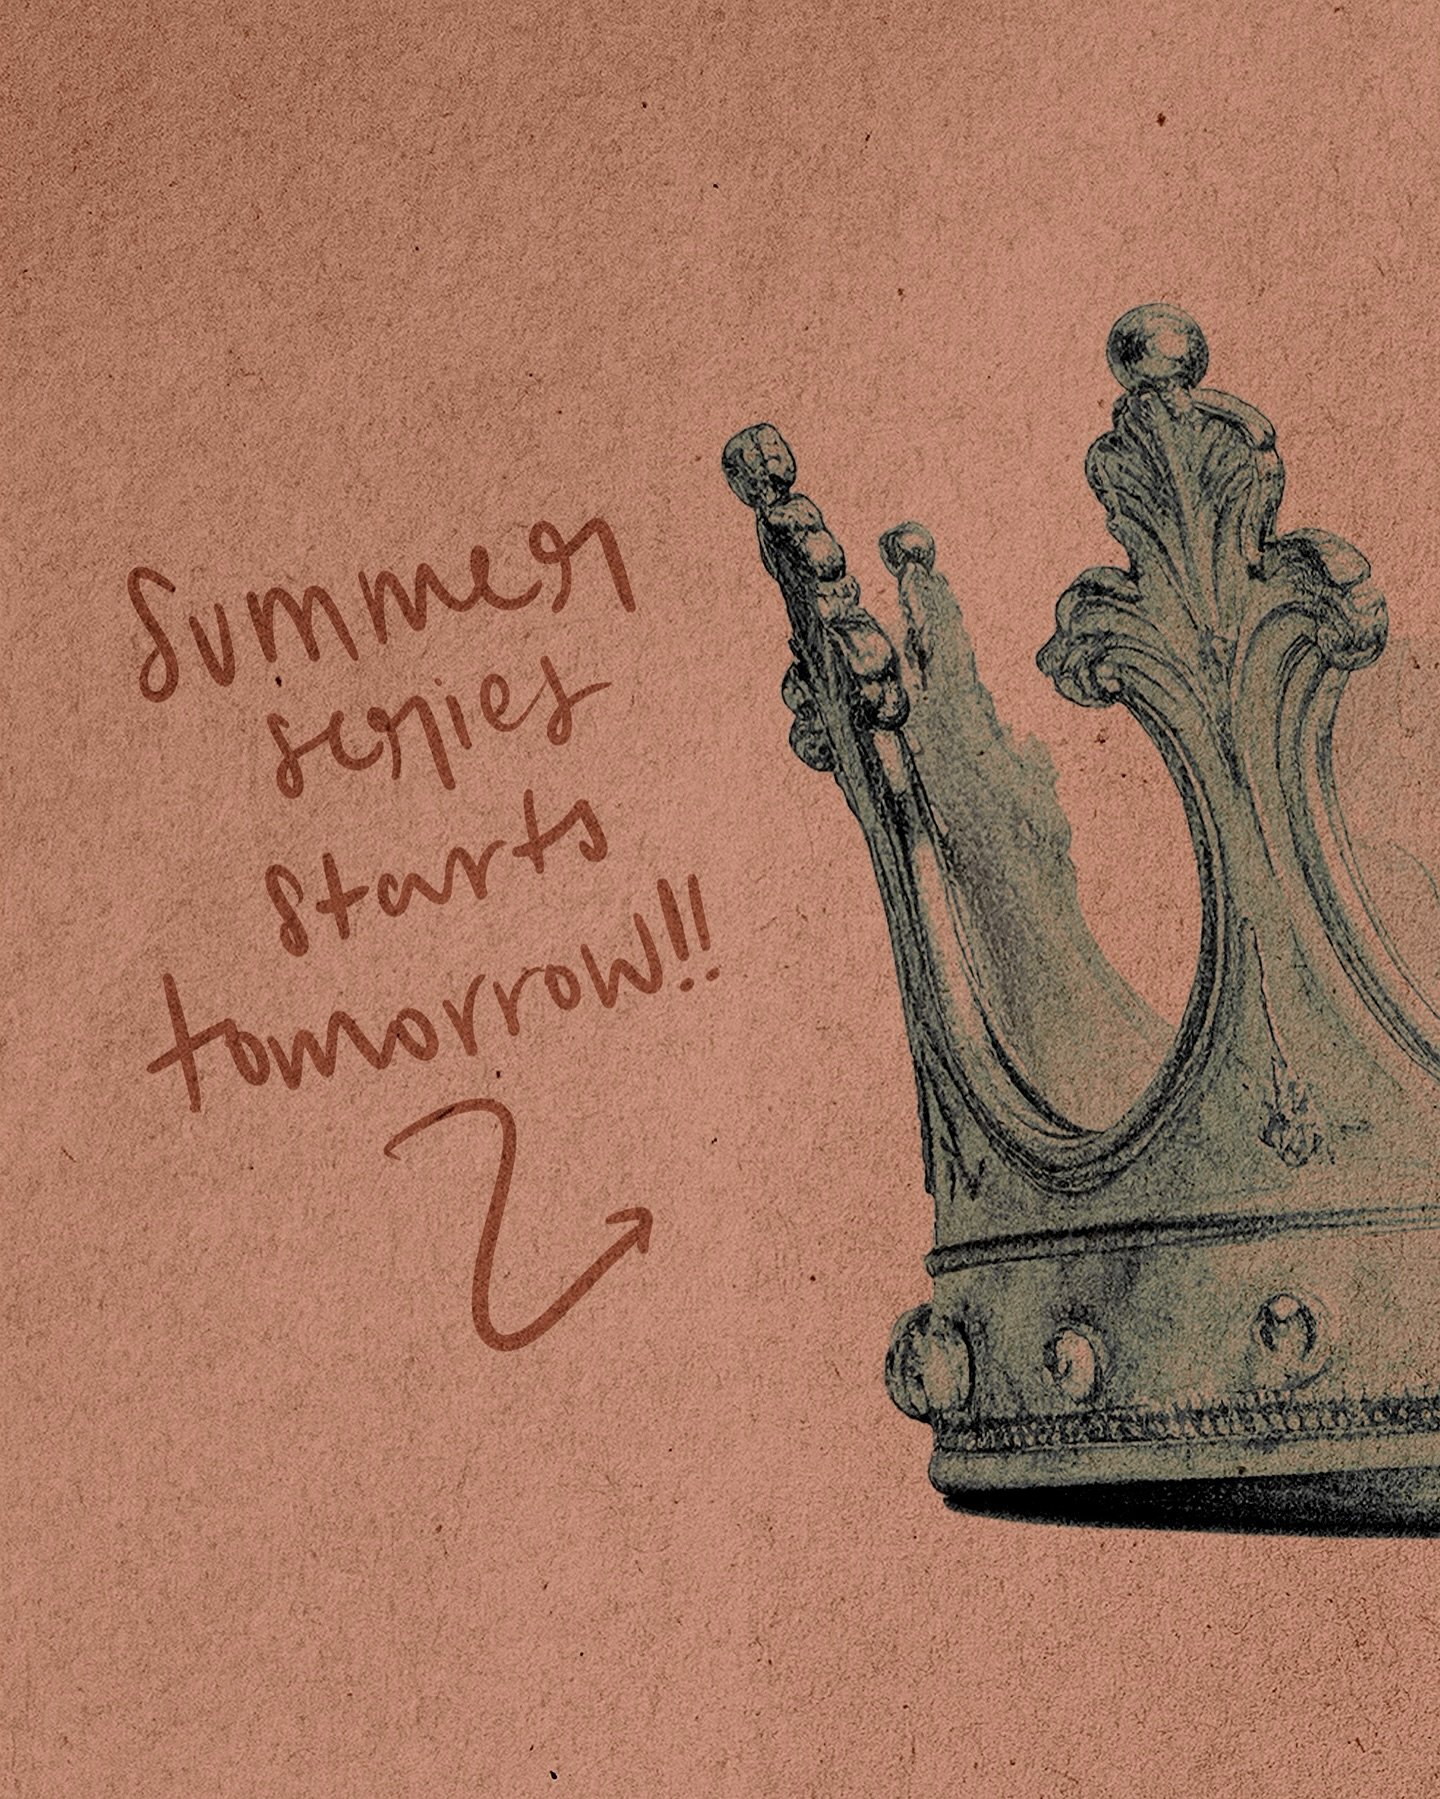 Summer
series
starts
tomorrow!!